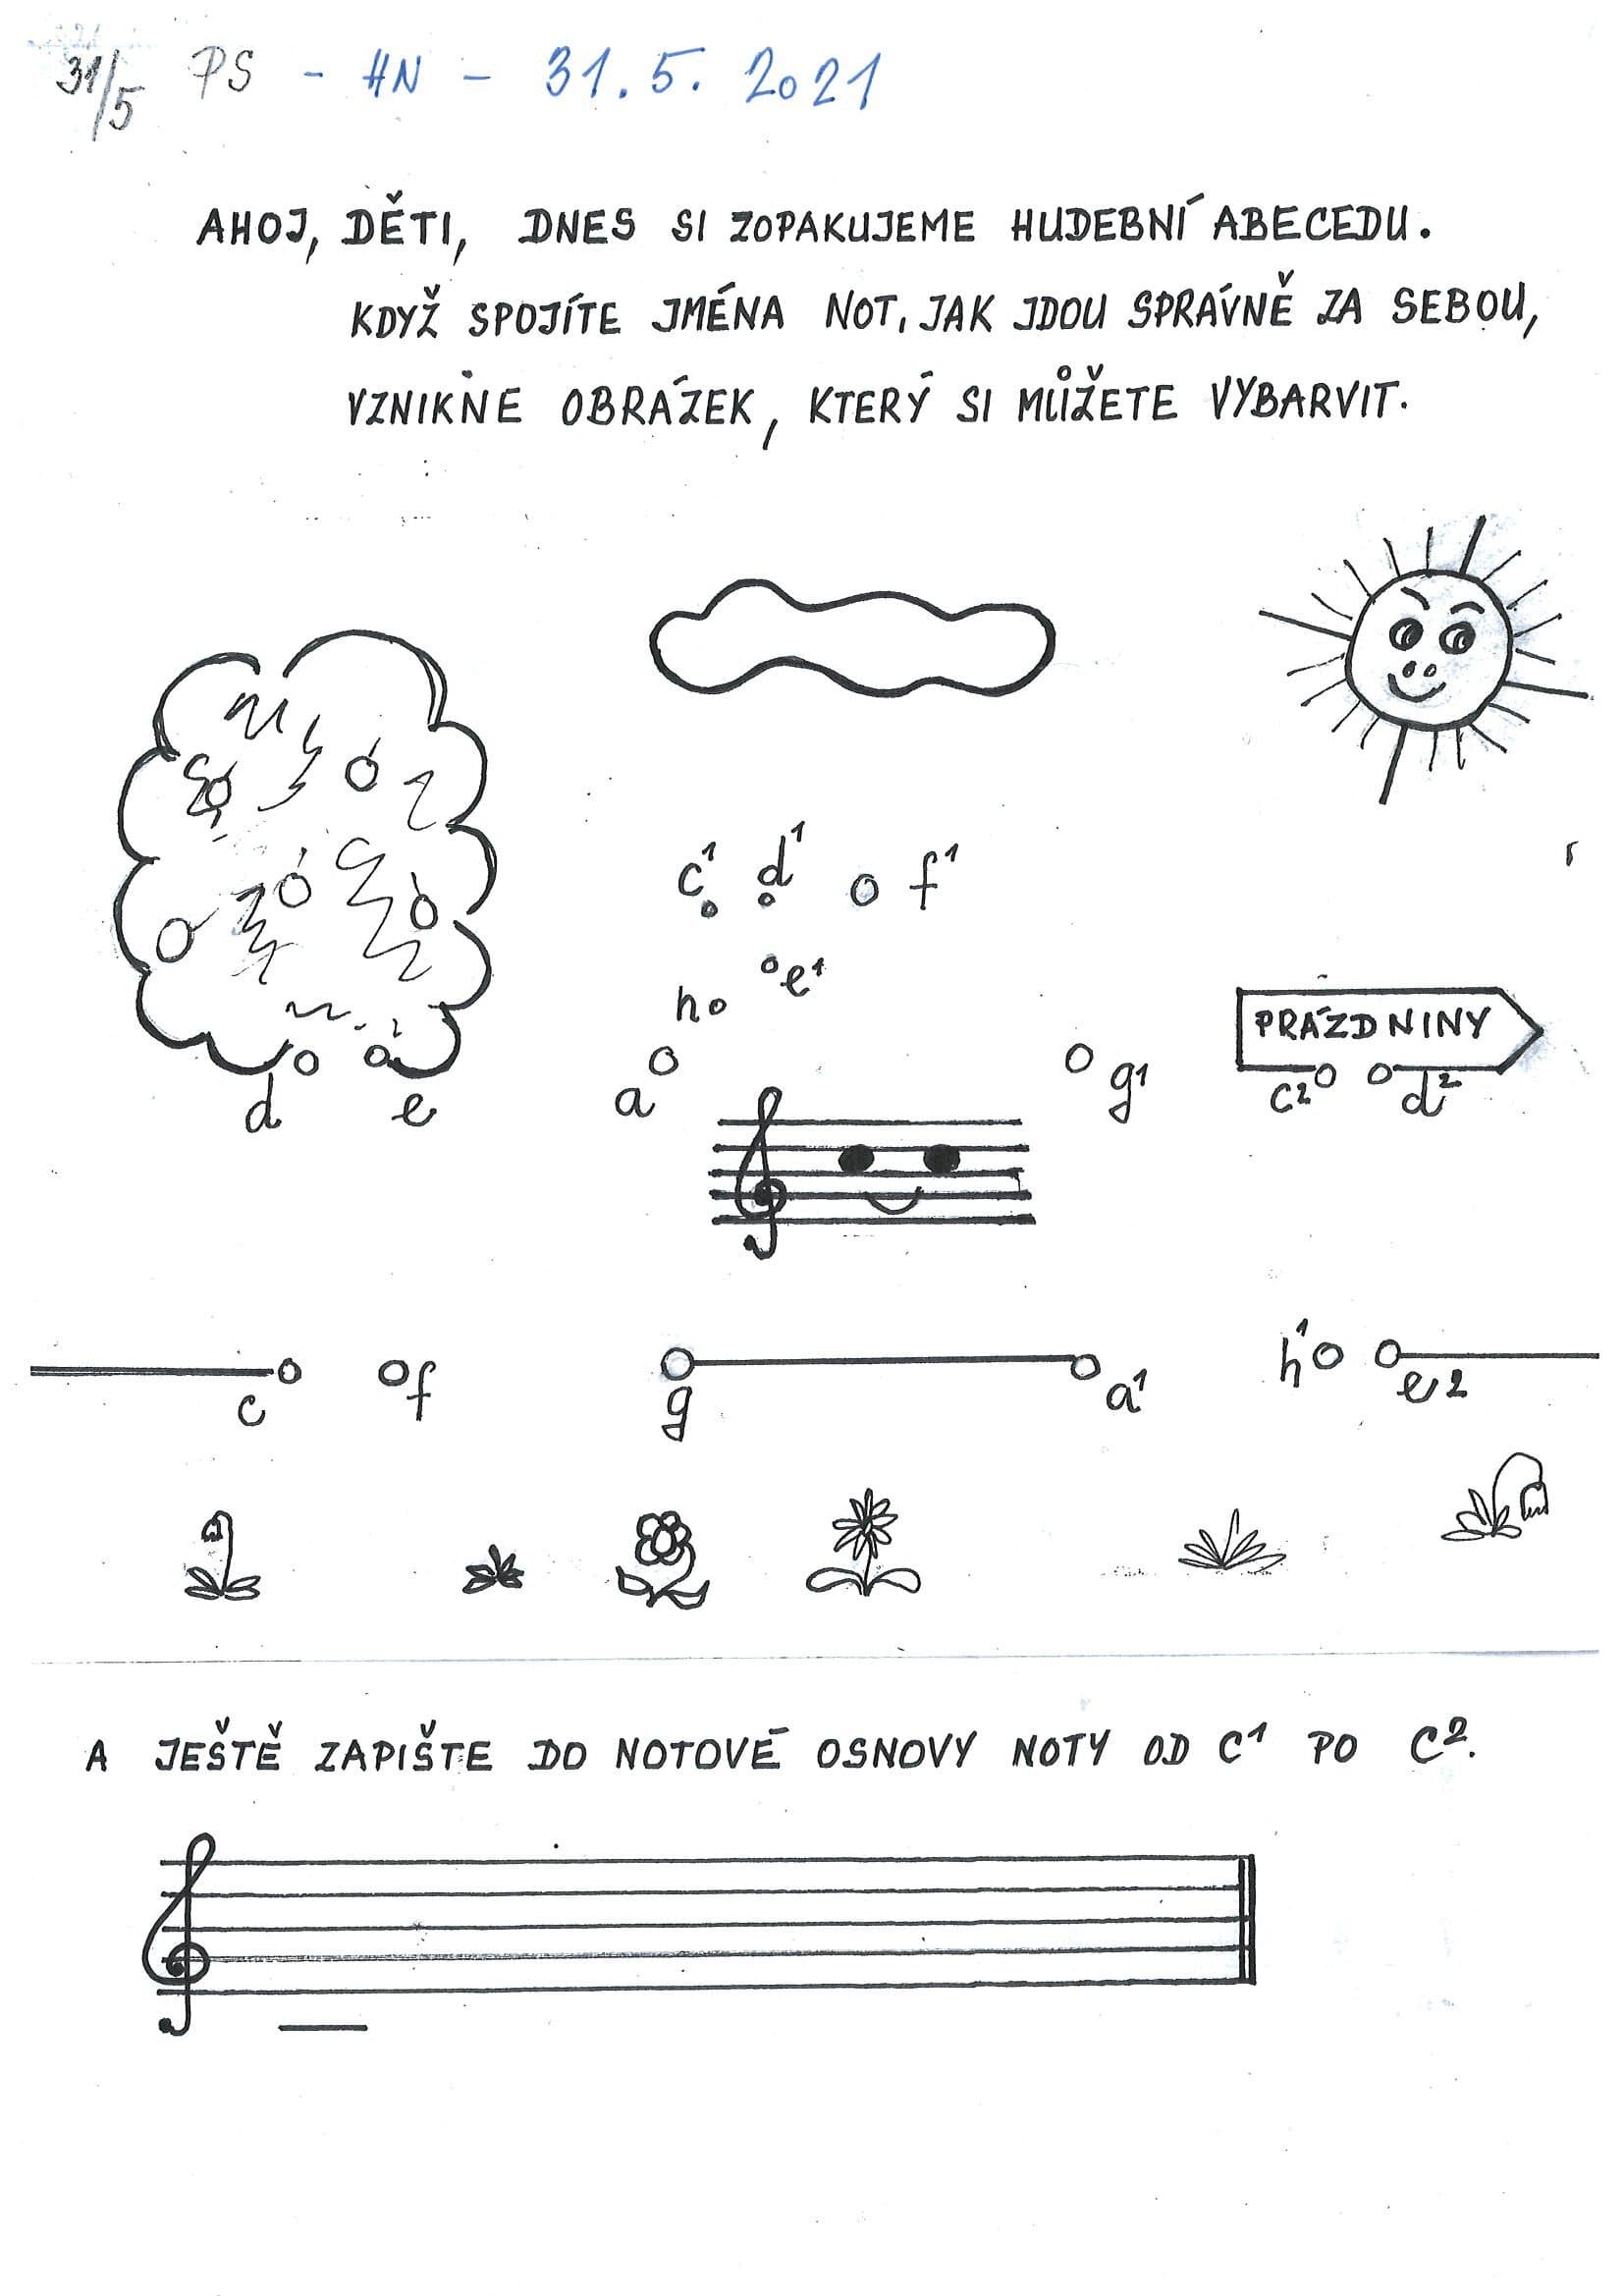 31/5 PS - HN - 31. 5. 2021
AHOJ, DĚTI, DNES SI ZOPAKUJEME HUDEBNÍ ABECEDU.
KDYŽ SPOJÍTE JMÉNA NOT, JAK JDOU SPRÁVNĚ ZA SEBOU,
VZNIKNE OBRÁZEK, KTERÝ SI MŮŽETE VYBARVIT.
c¹ d¹ f¹
h e¹
PRÁZDNINY
d e a g¹ c² d²
c f g a¹ h¹ e²
A JEŠTĚ ZAPIŠTE DO NOTOVÉ OSNOVY NOTY OD C¹ PO C².